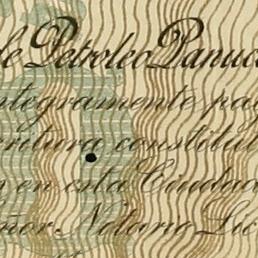 de Petroleo Panuco
integramente pag
entura constituid
en esta Ciudad
eñor Notario Lic